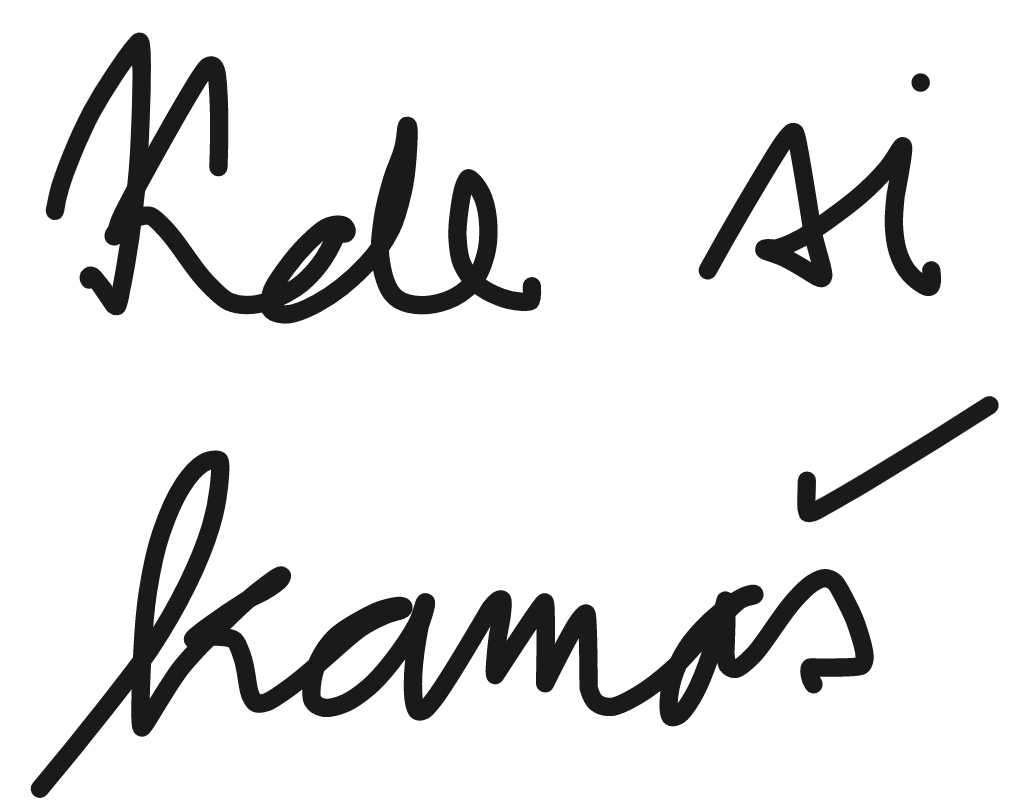 Kde si
kamaš